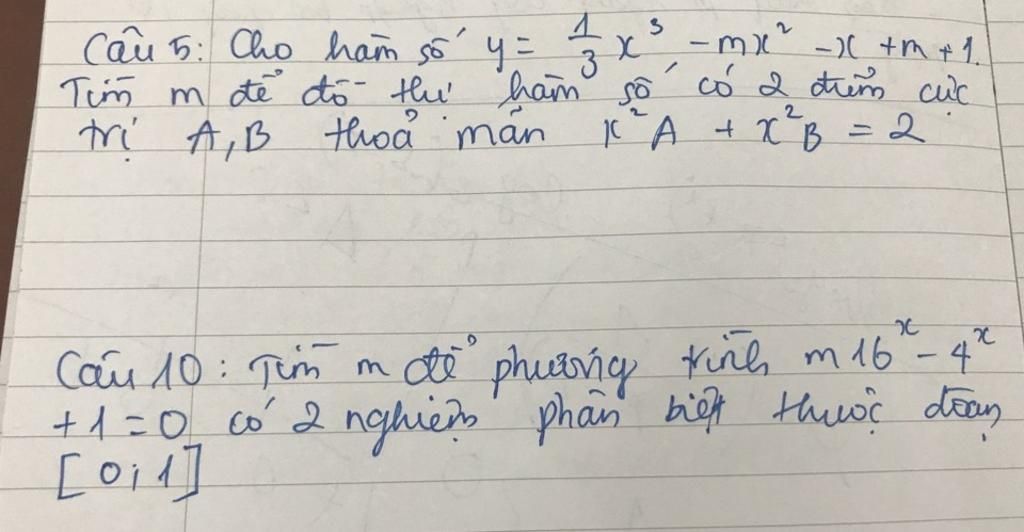 Câu 5: Cho hàm số y = 1/3 x³ - mx² - x + m + 1.
Tìm m để đồ thị hàm số có 2 điểm cực
trị A, B thoả mãn x²A + x²B = 2
Câu 10: Tìm m để phương trình m16ˣ - 4ˣ
+ 1 = 0 có 2 nghiệm phân biệt thuộc đoạn
[0; 1]